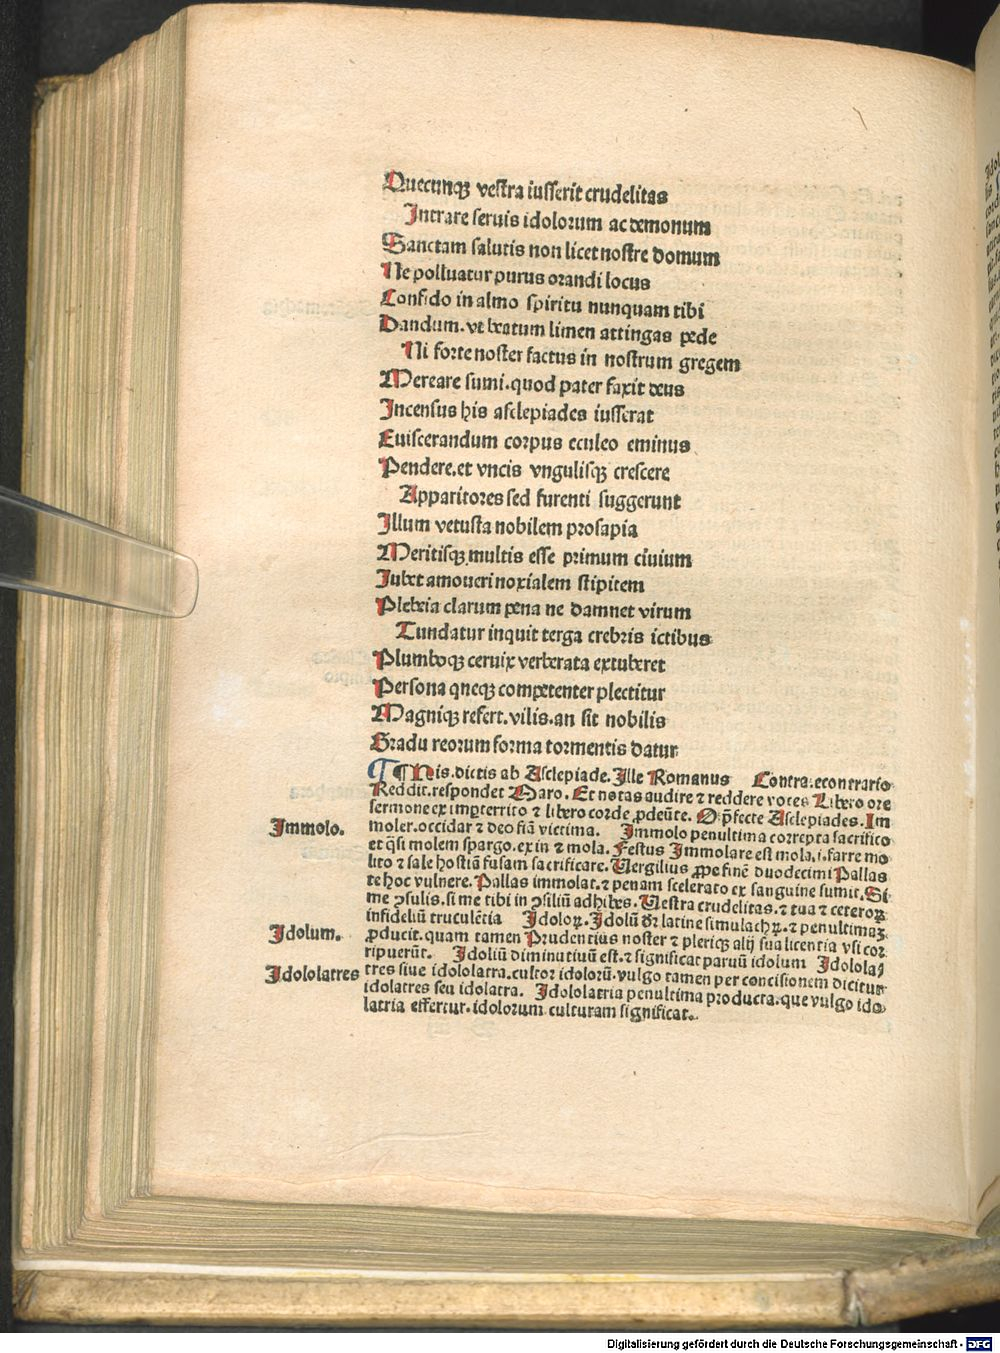 Quecunqꝫ vestra iusserit crudelitas
Intrare seruis idolorum ac demonum
Sanctam salutis non licet nostre domum
Ne polluatur purus orandi locus
Confido in almo spiritu nunquam tibi
Dandum. vt beatum limen attingas pede
Ni forte noster factus in nostrum gregem
Mereare sumi. quod pater faxit deus
Incensus his asclepiades iusserat
Euiscerandum corpus eculeo eminus
Pendere. et vncis vngulisqꝫ crescere
Apparitores sed furenti suggerunt
Illum vetusta nobilem prosapia
Meritisqꝫ multis esse primum ciuium
Iubet amoueri noxialem stipitem
Plebeia clarum pena ne damnet virum
Tundatur inquit terga crebris ictibus
Plumboqꝫ ceruix verberata extuberet
Persona queqꝫ competenter plectitur
Magniqꝫ refert. vilis. an sit nobilis
Gradu reorum forma tormentis datur
¶ His. dictis ab Asclepiade. Ille Romanus Contra. econtrario
Reddit. respondet Maro. Et notas audire ⁊ reddere voces Libero ore
sermone ex imperterrito ⁊ libero corde ꝓdeūte. O p̄fecte Asclepiades. Im
Immolo. moler. occidar ⁊ deo fiā victima. Immolo penultima correpta sacrifico
et q̄si molem spargo. ex in ⁊ mola. Festus Immolare est mola .i. farre mo
lito ⁊ sale hostiā fusam sacrificare. Vergilius ꝓpe finē duodecimi Pallas
te hoc vulnere. Pallas immolat. ⁊ penam scelerato ex sanguine sumit. Si
me ꝯsulis. si me tibi in ꝯsiliū adhibes. Vestra crudelitas. ⁊ tua ⁊ ceteroꝝ
infideliū truculētia Idoloꝝ. Idolū dr̄ latine simulachꝝ. ⁊ penultimaꝫ
Idolum. ꝓducit. quam tamen Prudentius noster ⁊ pleriqꝫ alij sua licentia vsi cor
ripuerūt. Idoliū diminutiuū est. ⁊ significat paruū idolum Idolola/
Idololatres tres siue idololatra. cultor idolorū. vulgo tamen per concisionem dicitur
idolatres seu idolatra. Idololatria penultima producta. que vulgo ido
latria effertur. idolorum culturam significat.
Digitalisierung gefördert durch die Deutsche Forschungsgemeinschaft - DFG